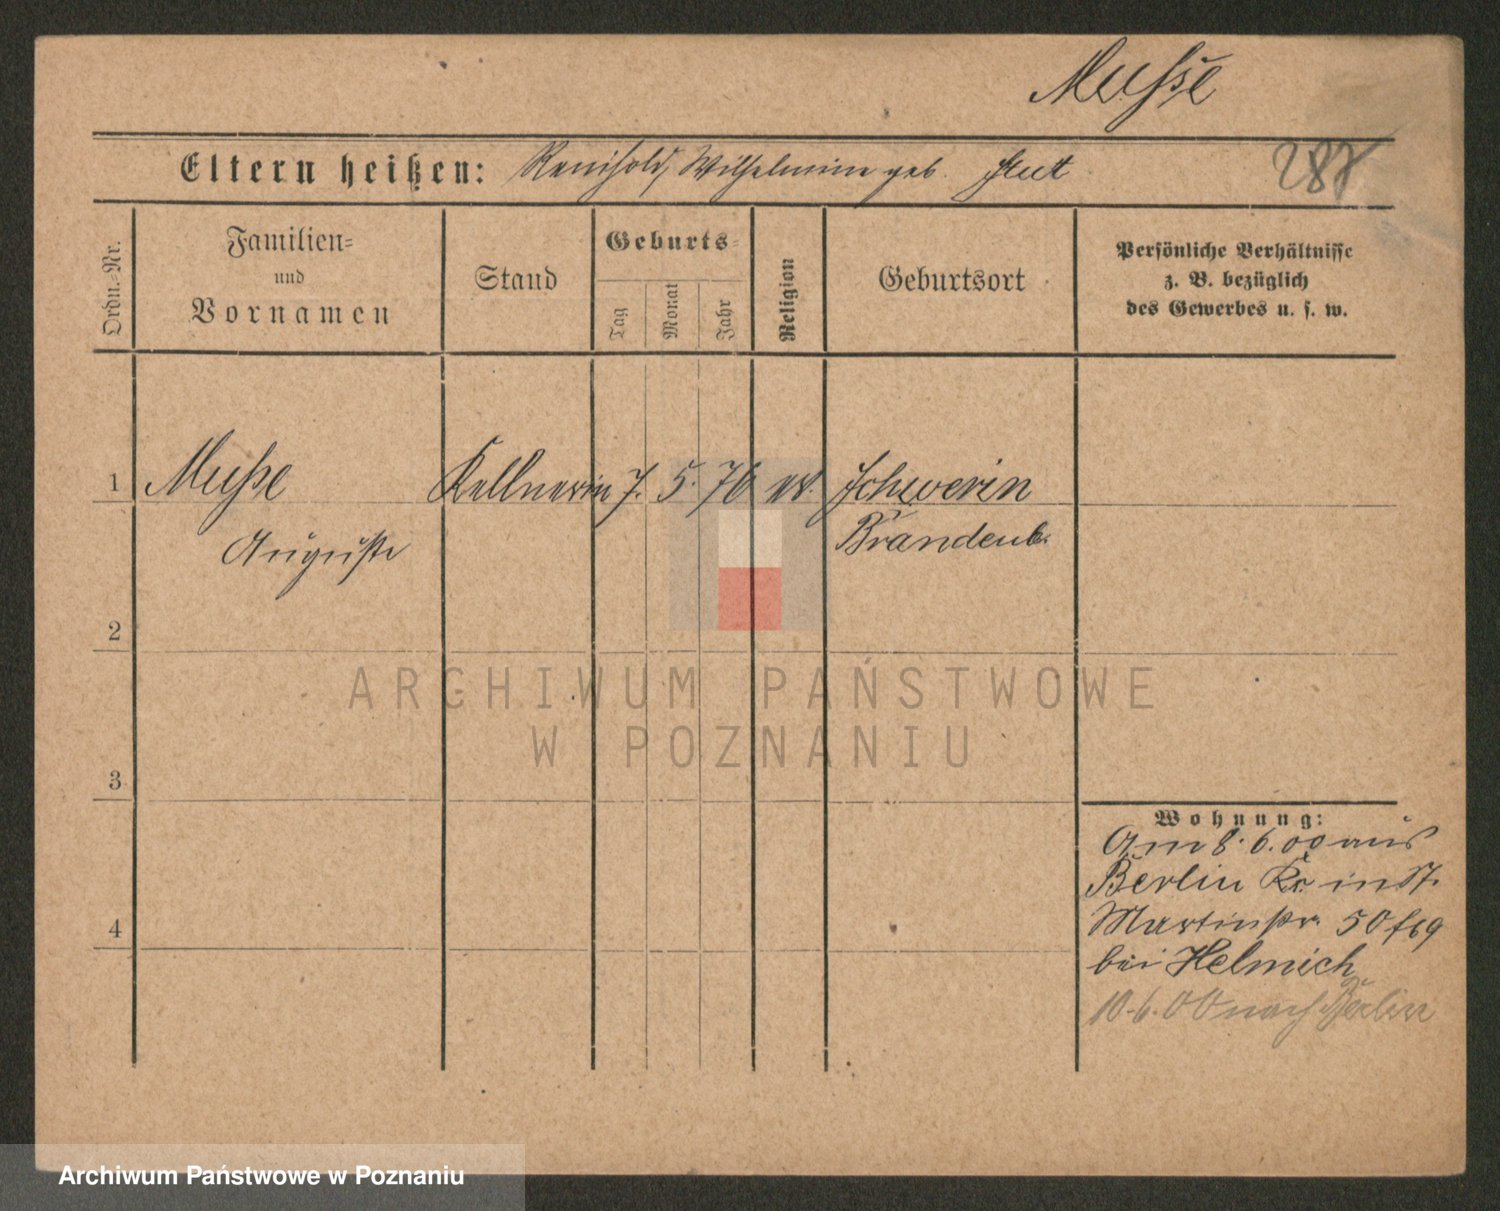 Musse
Eltern heißen: Reinhold, Wilhelmine geb. Hut
287
Ordn.-Nr.
Familien-
und
Vornamen
Stand
Geburts-
Tag
Monat
Jahr
Religion
Geburtsort
Persönliche Verhältnisse
z. B. bezüglich
des Gewerbes u. s. w.
1 Musse Kellnerin 7. 5. 76 ev. Schwerin
Auguste Brandenb.
2
ARCHIWUM PAŃSTWOWE
W POZNANIU
3
Wohnung:
Am 8. 6. 00 aus
Berlin Kr. in St.
Martinstr. 50
bei Helmich
4
10.6.00 nach Berlin
Archiwum Państwowe w Poznaniu